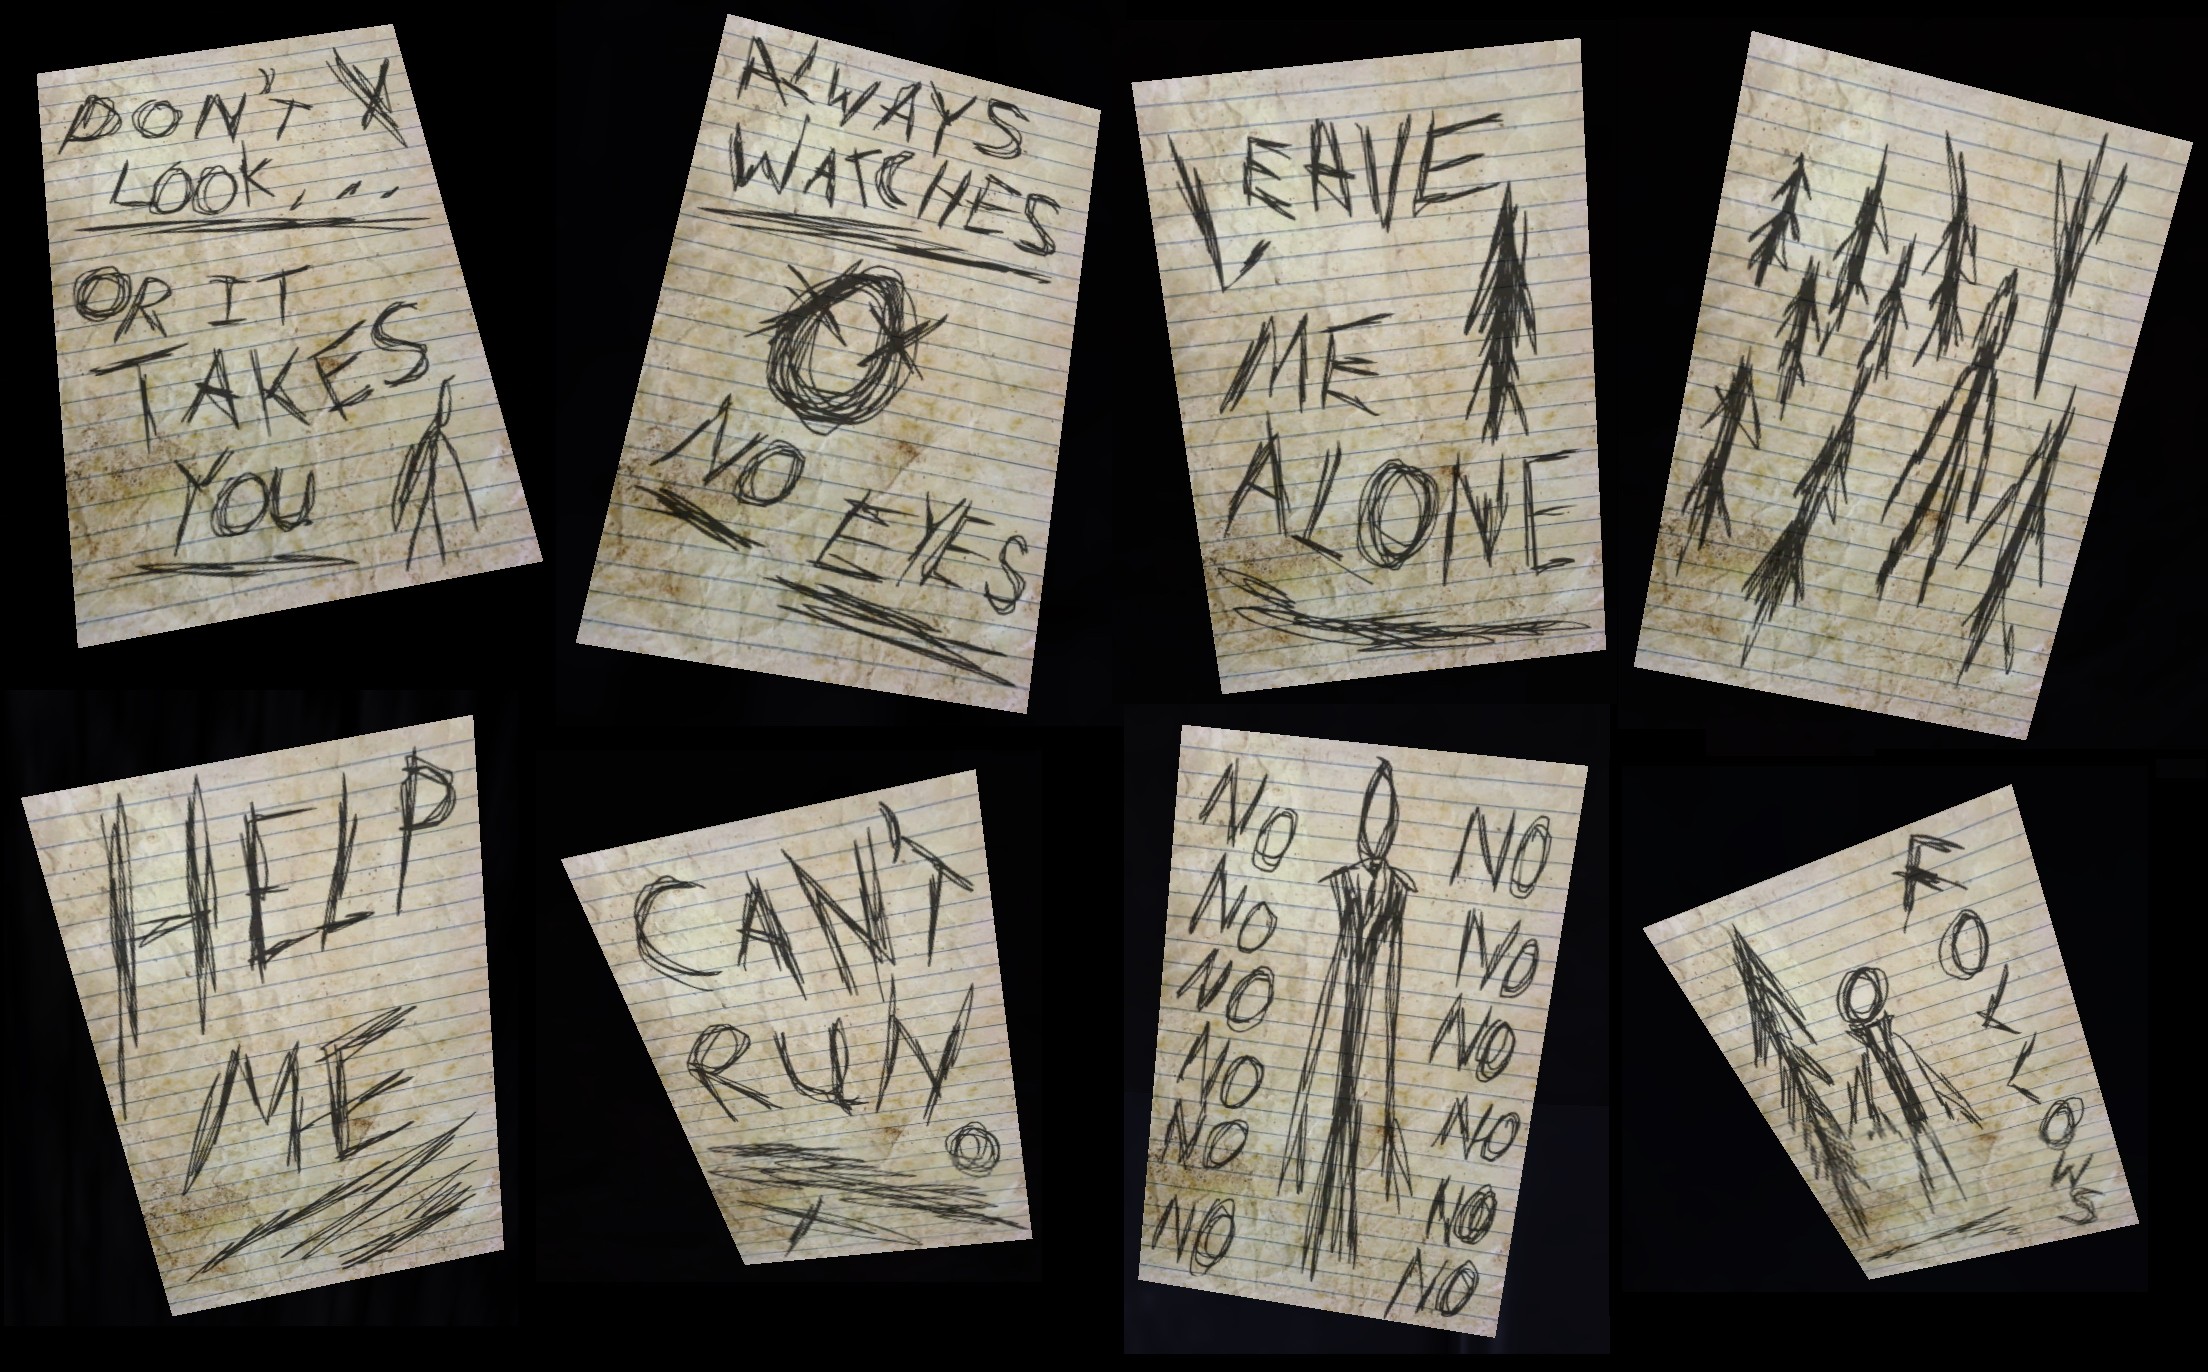 DON'T
LOOK...
OR IT
TAKES
YOU
ALWAYS
WATCHES
NO
EYES
LEAVE
ME
ALONE
HELP
ME
CAN'T
RUN
NO NO
NO NO
NO NO
NO NO
NO NO
NO NO
FOLLOWS